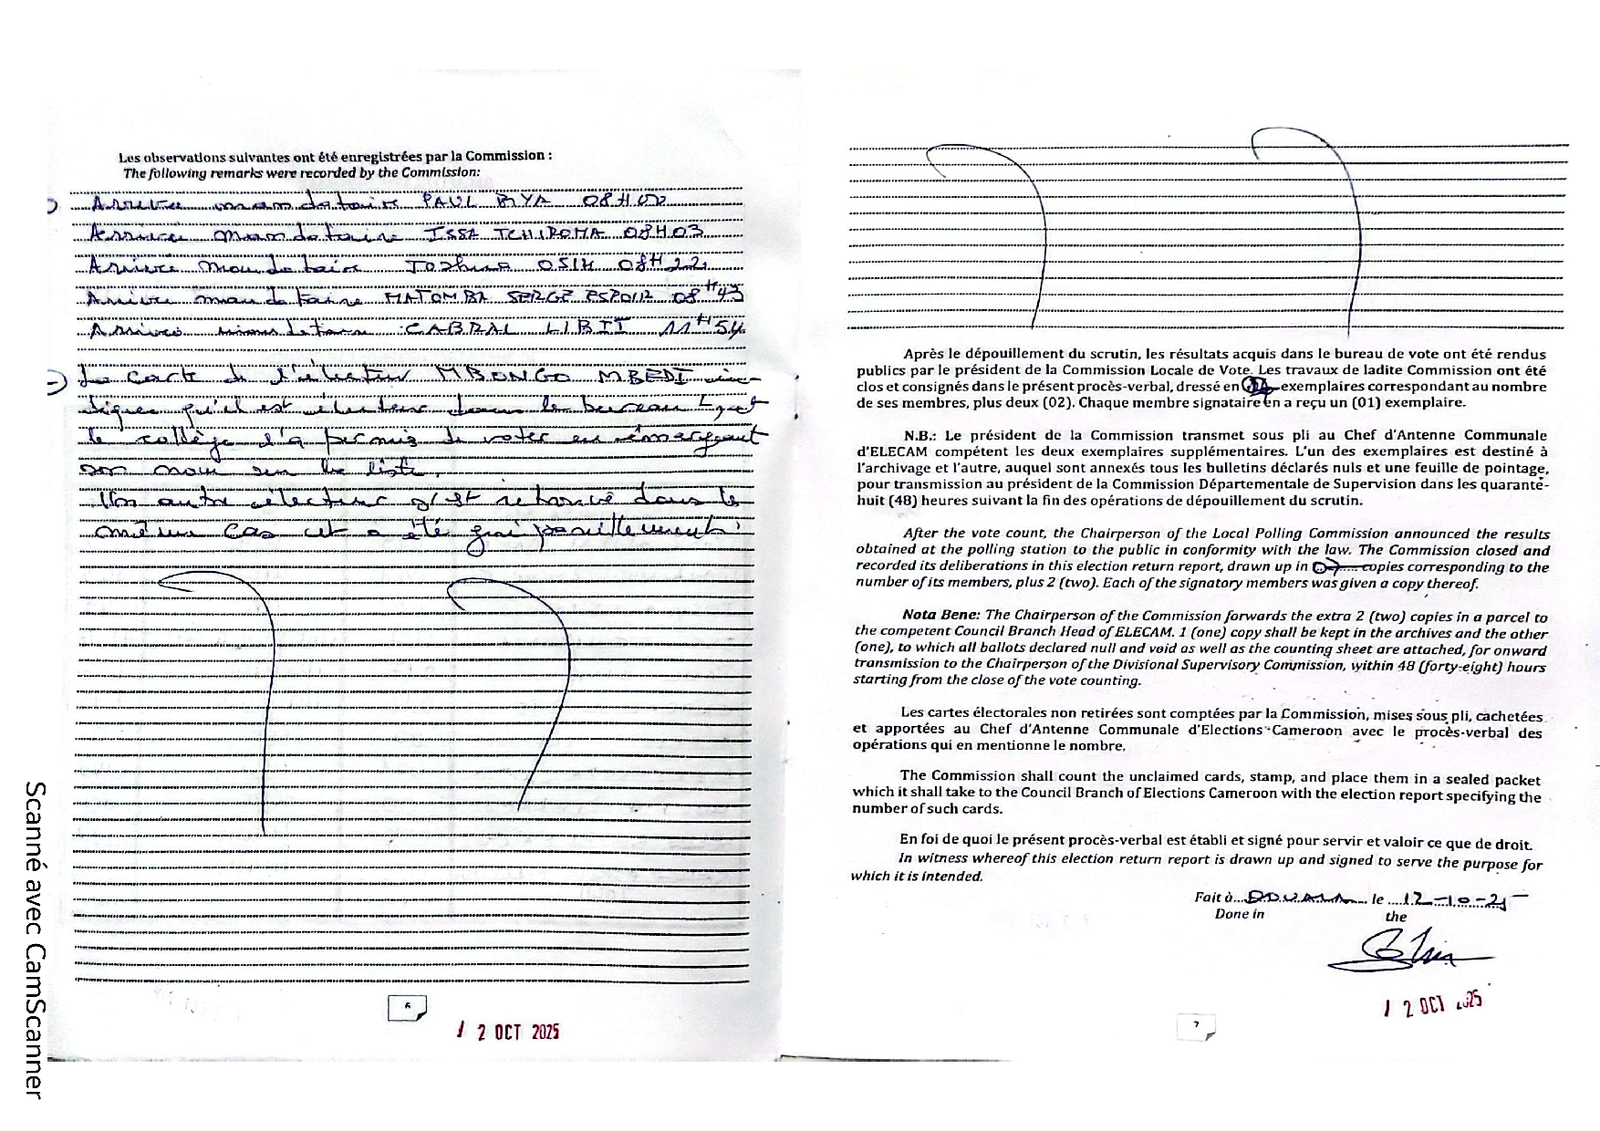 Les observations suivantes ont été enregistrées par la Commission :
The following remarks were recorded by the Commission:
Arrivée mandataire PAUL BIYA 08H00
Arrivée mandataire ISSA TCHIROMA 08H03
Arrivée mandataire Joshua OSIH 08H22
Arrivée mandataire MATOMBA SERGE ESPOIR 08H43
Arrivée mandataire CABRAL LIBII 11H54
La carte de l'électeur MBONGO MBEDI in-
dique qu'il est électeur dans le bureau et
le collège l'a permis de voter en émargeant
son nom sur la liste.
Un autre électeur s'est retrouvé dans le
même cas et a été pareillement
6
12 OCT 2025
Après le dépouillement du scrutin, les résultats acquis dans le bureau de vote ont été rendus
publics par le président de la Commission Locale de Vote. Les travaux de ladite Commission ont été
clos et consignés dans le présent procès-verbal, dressé en exemplaires correspondant au nombre
de ses membres, plus deux (02). Chaque membre signataire en a reçu un (01) exemplaire.
N.B.: Le président de la Commission transmet sous pli au Chef d'Antenne Communale
d'ELECAM compétent les deux exemplaires supplémentaires. L'un des exemplaires est destiné à
l'archivage et l'autre, auquel sont annexés tous les bulletins déclarés nuls et une feuille de pointage,
pour transmission au président de la Commission Départementale de Supervision dans les quarante-
huit (48) heures suivant la fin des opérations de dépouillement du scrutin.
After the vote count, the Chairperson of the Local Polling Commission announced the results
obtained at the polling station to the public in conformity with the law. The Commission closed and
recorded its deliberations in this election return report, drawn up in 07 copies corresponding to the
number of its members, plus 2 (two). Each of the signatory members was given a copy thereof.
Nota Bene: The Chairperson of the Commission forwards the extra 2 (two) copies in a parcel to
the competent Council Branch Head of ELECAM. 1 (one) copy shall be kept in the archives and the other
(one), to which all ballots declared null and void as well as the counting sheet are attached, for onward
transmission to the Chairperson of the Divisional Supervisory Commission, within 48 (forty-eight) hours
starting from the close of the vote counting.
Les cartes électorales non retirées sont comptées par la Commission, mises sous pli, cachetées
et apportées au Chef d'Antenne Communale d'Elections Cameroon avec le procès-verbal des
opérations qui en mentionne le nombre.
The Commission shall count the unclaimed cards, stamp, and place them in a sealed packet
which it shall take to the Council Branch of Elections Cameroon with the election report specifying the
number of such cards.
En foi de quoi le présent procès-verbal est établi et signé pour servir et valoir ce que de droit.
In witness whereof this election return report is drawn up and signed to serve the purpose for
which it is intended.
Fait à DOUALA le 12-10-25
Done in the
12 OCT 2025
7
Scanné avec CamScanner